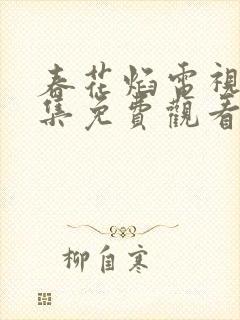 春花焰電視
集免費觀看
柳自寒